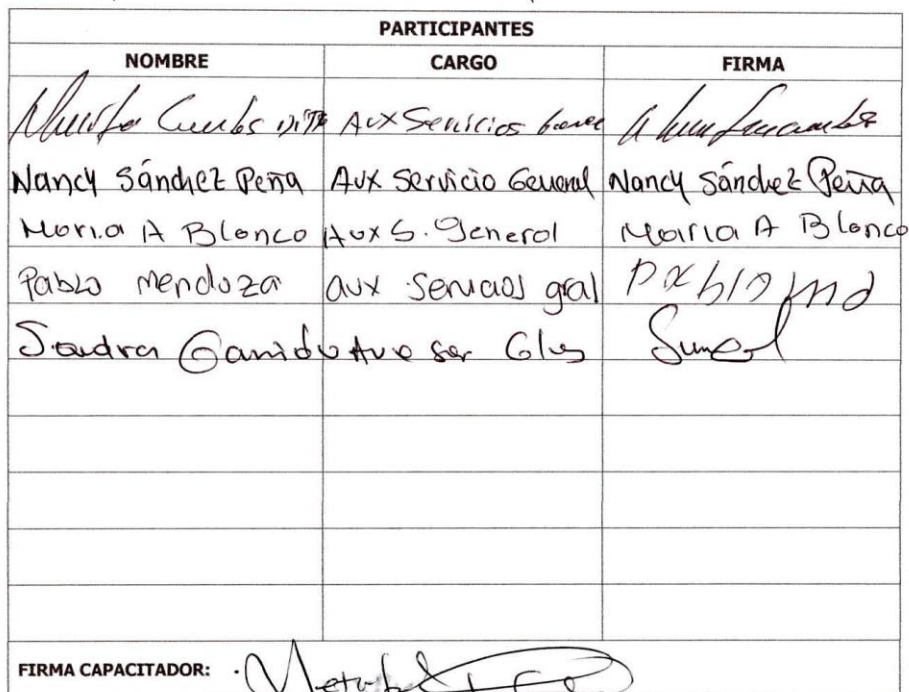 PARTICIPANTES
NOMBRE CARGO FIRMA
Aux Servicios
Nancy Sánchez Peña Aux Servicio General Nancy Sánchez Peña
Maria A Blanco Aux S. General Maria A Blanco
Pablo Mendoza aux Servicios gral Pablo md
Sandra Garrido Aux Ser Gles
FIRMA CAPACITADOR: